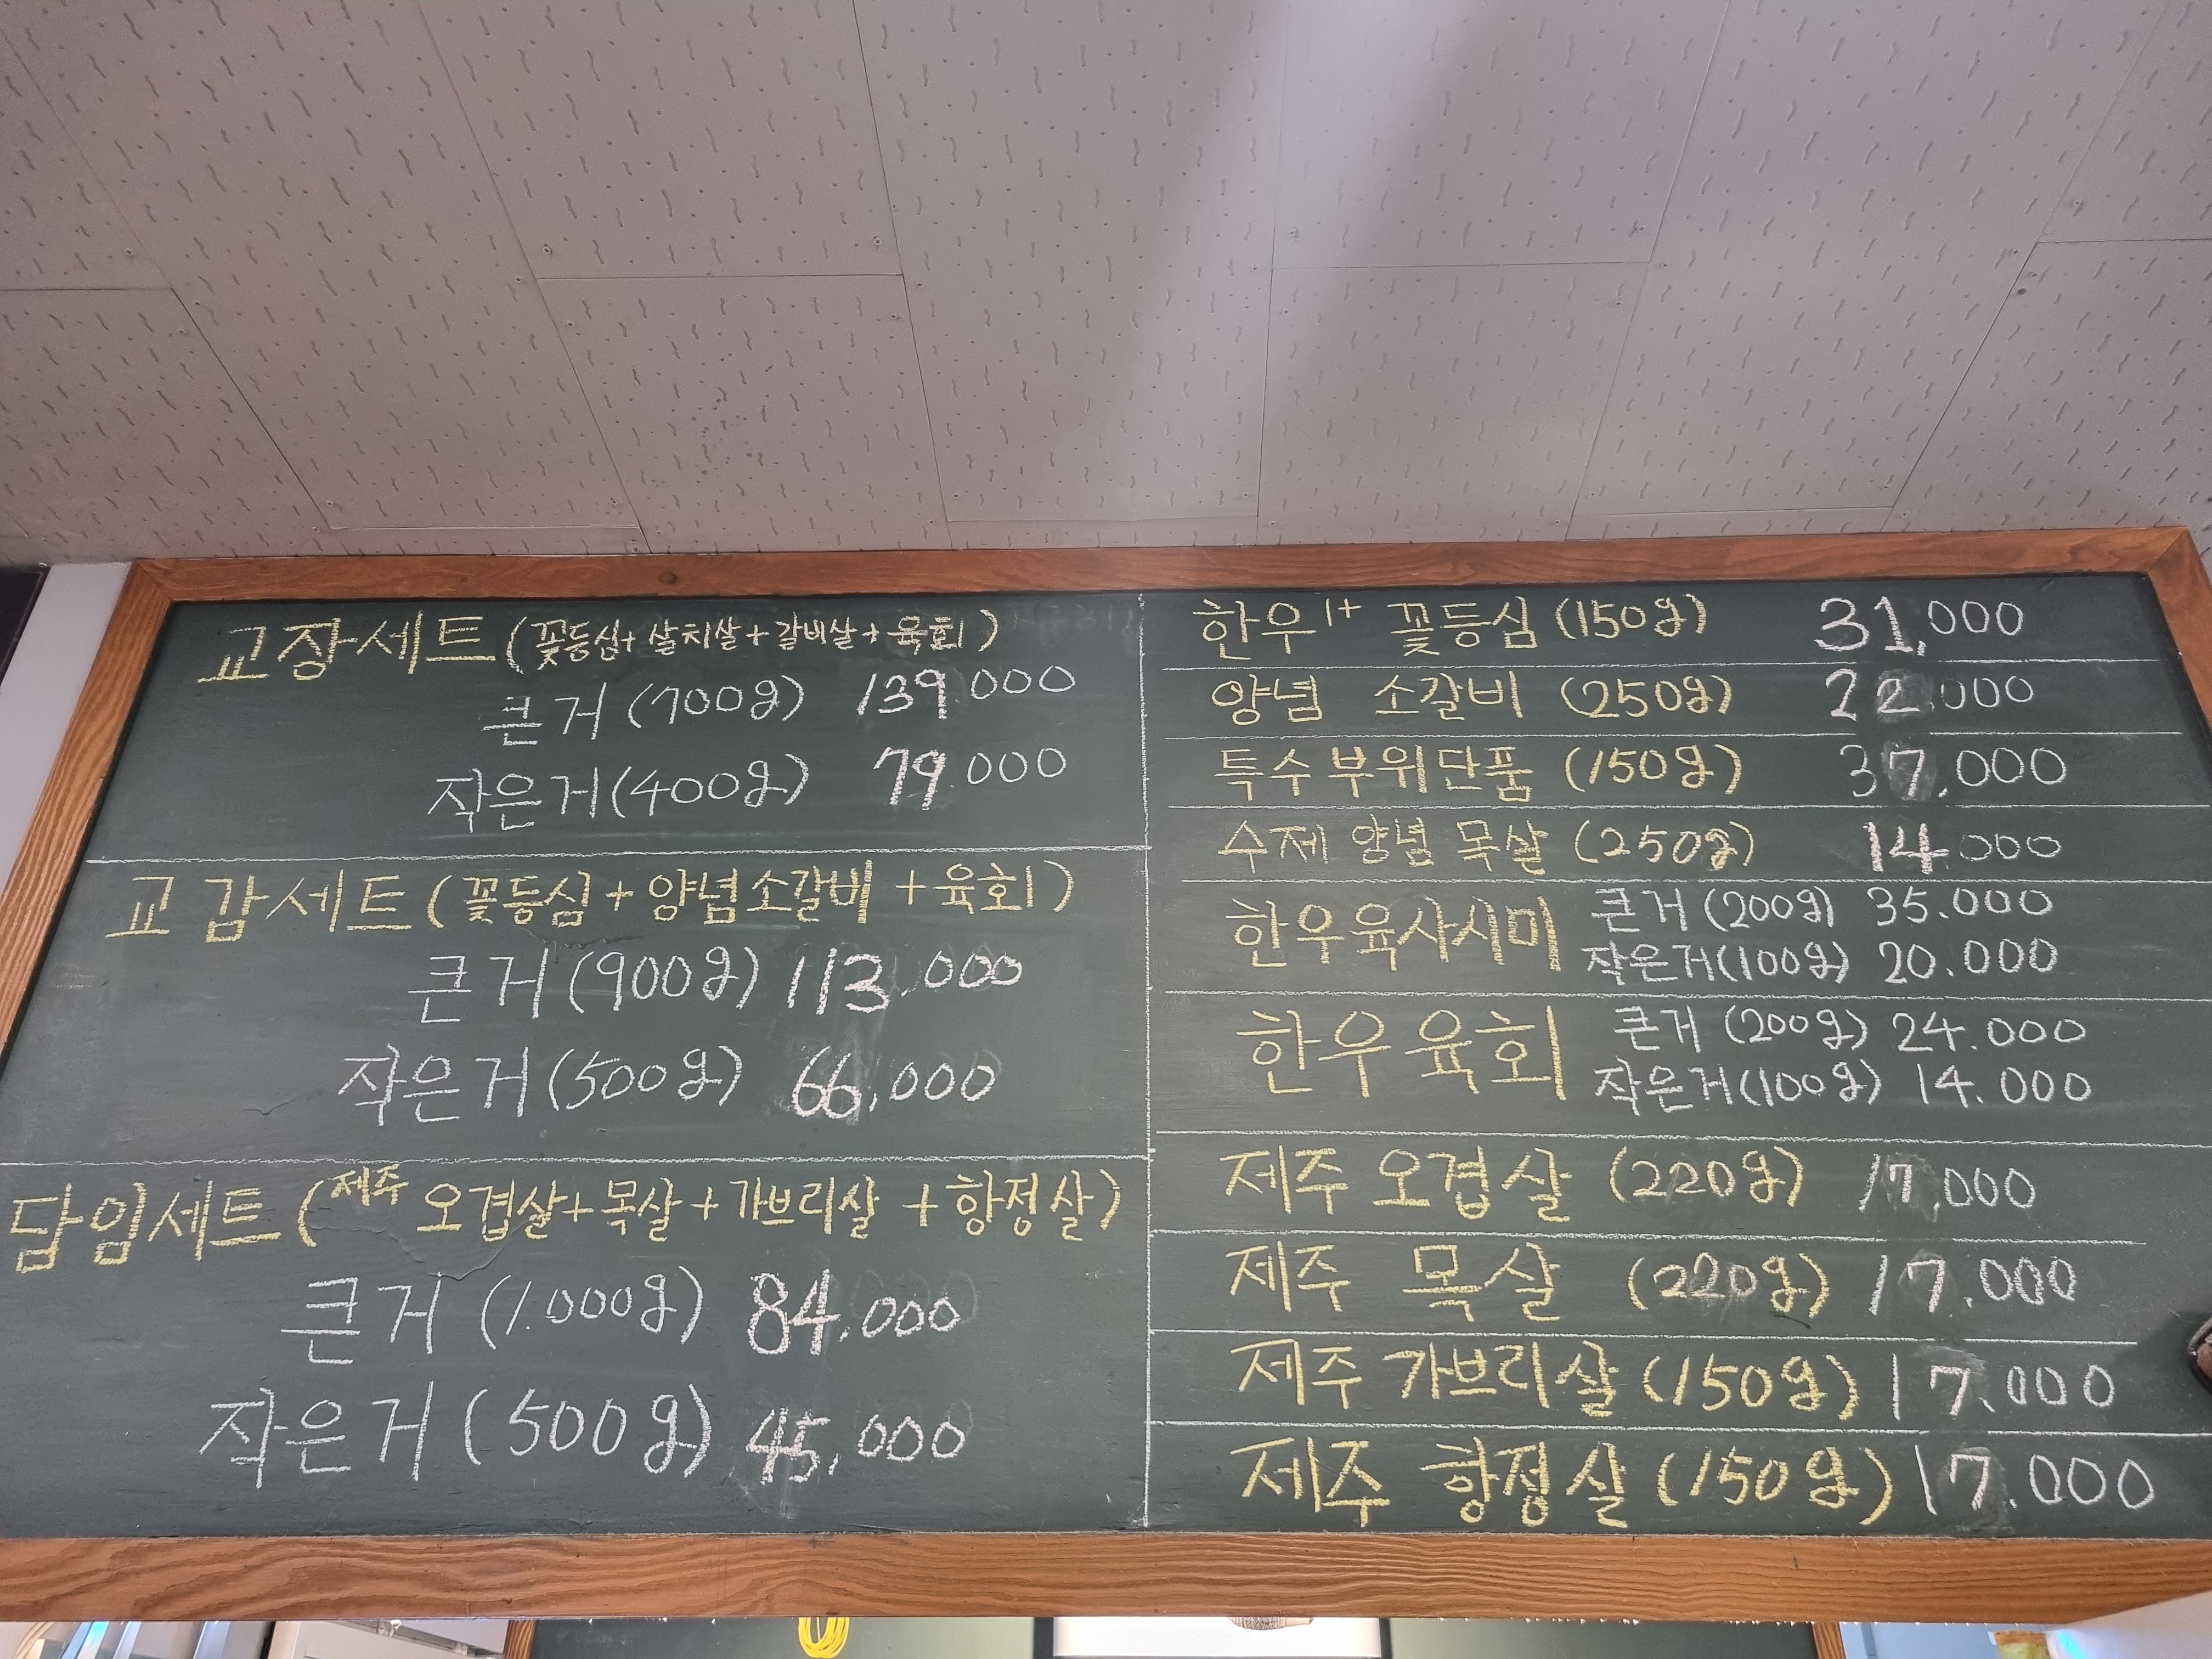 교장세트 (꽃등심+살치살+갈비살+육회)
큰거 (700g) 139.000
작은거(400g) 79.000
교감세트 (꽃등심+양념소갈비+육회)
큰거 (900g) 113.000
작은거(500g) 66.000
담임세트 (제주 오겹살+목살+가브리살+항정살)
큰거 (1.000g) 84.000
작은거 (500g) 45.000
한우 1+ 꽃등심 (150g) 31,000
양념 소갈비 (250g) 22.000
특수부위단품 (150g) 37.000
수제 양념 목살 (250g) 14.000
한우육사시미 큰거 (200g) 35.000
작은거(100g) 20.000
한우육회 큰거 (200g) 24.000
작은거(100g) 14.000
제주 오겹살 (220g) 17.000
제주 목살 (220g) 17.000
제주 가브리살 (150g) 17.000
제주 항정살 (150g) 17.000